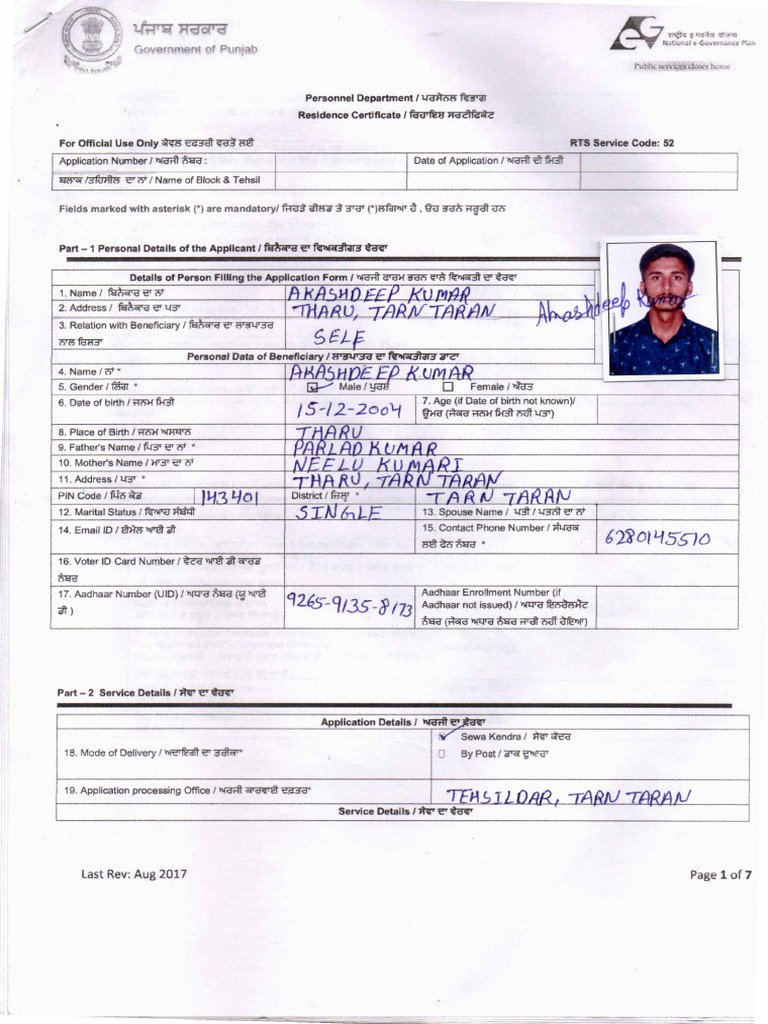 ਪੰਜਾਬ ਸਰਕਾਰ
Government of Punjab
राष्ट्रीय इ गवर्नेंस योजना
National e-Governance Plan
Public services closer home
Personnel Department / ਪਰਸੋਨਲ ਵਿਭਾਗ
Residence Certificate / ਰਿਹਾਇਸ਼ ਸਰਟੀਫਿਕੇਟ
For Official Use Only ਕੇਵਲ ਦਫਤਰੀ ਵਰਤੋਂ ਲਈ RTS Service Code: 52
Application Number / ਅਰਜੀ ਨੰਬਰ : Date of Application / ਅਰਜੀ ਦੀ ਮਿਤੀ
ਬਲਾਕ /ਤਹਿਸੀਲ ਦਾ ਨਾਂ / Name of Block & Tehsil
Fields marked with asterisk (*) are mandatory/ ਜਿਹੜੇ ਫੀਲਡ ਤੇ ਤਾਰਾ (*)ਲਗਿਆ ਹੈ , ਓਹ ਭਰਨੇ ਜਰੂਰੀ ਹਨ
Part – 1 Personal Details of the Applicant / ਬਿਨੈਕਾਰ ਦਾ ਵਿਅਕਤੀਗਤ ਵੇਰਵਾ
Details of Person Filling the Application Form / ਅਰਜੀ ਫਾਰਮ ਭਰਨ ਵਾਲੇ ਵਿਅਕਤੀ ਦਾ ਵੇਰਵਾ
1. Name / ਬਿਨੈਕਾਰ ਦਾ ਨਾਂ AKASHDEEP KUMAR
2. Address / ਬਿਨੈਕਾਰ ਦਾ ਪਤਾ THARU, TARN TARAN
Akashdeep Kumar
3. Relation with Beneficiary / ਬਿਨੈਕਾਰ ਦਾ ਲਾਭਪਾਤਰ
ਨਾਲ ਰਿਸ਼ਤਾ SELF
Personal Data of Beneficiary / ਲਾਭਪਾਤਰ ਦਾ ਵਿਅਕਤੀਗਤ ਡਾਟਾ
4. Name / ਨਾਂ * AKASHDEEP KUMAR
5. Gender / ਲਿੰਗ * Male / ਪੁਰਸ਼ Female / ਔਰਤ
6. Date of birth / ਜਨਮ ਮਿਤੀ 15-12-2004 7. Age (if Date of birth not known)/
ਉਮਰ (ਜੇਕਰ ਜਨਮ ਮਿਤੀ ਨਹੀਂ ਪਤਾ)
8. Place of Birth / ਜਨਮ ਅਸਥਾਨ THARU
9. Father's Name / ਪਿਤਾ ਦਾ ਨਾਂ * PARLAD KUMAR
10. Mother's Name / ਮਾਤਾ ਦਾ ਨਾਂ NEELU KUMARI
11. Address / ਪਤਾ * THARU, TARN TARAN
PIN Code / ਪਿੰਨ ਕੋਡ 143401 District / ਜ਼ਿਲ੍ਹਾ * TARN TARAN
12. Marital Status / ਵਿਆਹ ਸੰਬੰਧੀ SINGLE 13. Spouse Name / ਪਤੀ / ਪਤਨੀ ਦਾ ਨਾਂ
14. Email ID / ਈਮੇਲ ਆਈ ਡੀ 15. Contact Phone Number / ਸੰਪਰਕ
ਲਈ ਫੋਨ ਨੰਬਰ * 6280145510
16. Voter ID Card Number / ਵੋਟਰ ਆਈ ਡੀ ਕਾਰਡ
ਨੰਬਰ
17. Aadhaar Number (UID) / ਅਧਾਰ ਨੰਬਰ (ਯੂ ਆਈ
ਡੀ ) 9265-9135-8173 Aadhaar Enrollment Number (if
Aadhaar not issued) / ਅਧਾਰ ਇਨਰੋਲਮੈਂਟ
ਨੰਬਰ (ਜੇਕਰ ਅਧਾਰ ਨੰਬਰ ਜਾਰੀ ਨਹੀਂ ਹੋਇਆ)
Part – 2 Service Details / ਸੇਵਾ ਦਾ ਵੇਰਵਾ
Application Details / ਅਰਜੀ ਦਾ ਵੇਰਵਾ
18. Mode of Delivery / ਅਦਾਇਗੀ ਦਾ ਤਰੀਕਾ* Sewa Kendra / ਸੇਵਾ ਕੇਂਦਰ
By Post / ਡਾਕ ਦੁਆਰਾ
19. Application processing Office / ਅਰਜੀ ਕਾਰਵਾਈ ਦਫ਼ਤਰ* TEHSILDAR, TARN TARAN
Service Details / ਸੇਵਾ ਦਾ ਵੇਰਵਾ
Last Rev: Aug 2017 Page 1 of 7